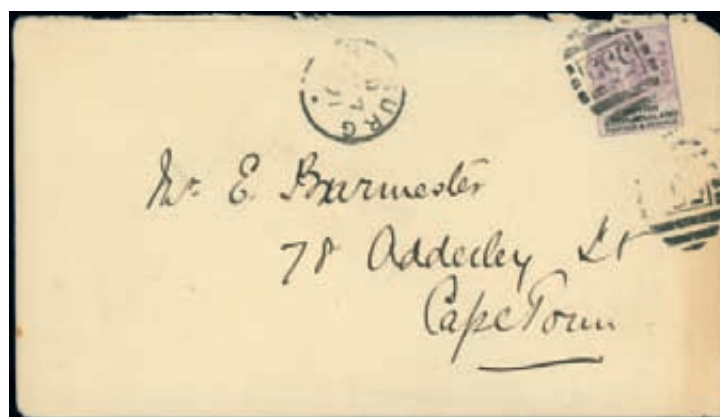 URG
Mr E. Burmester
78 Adderley St
Cape Town